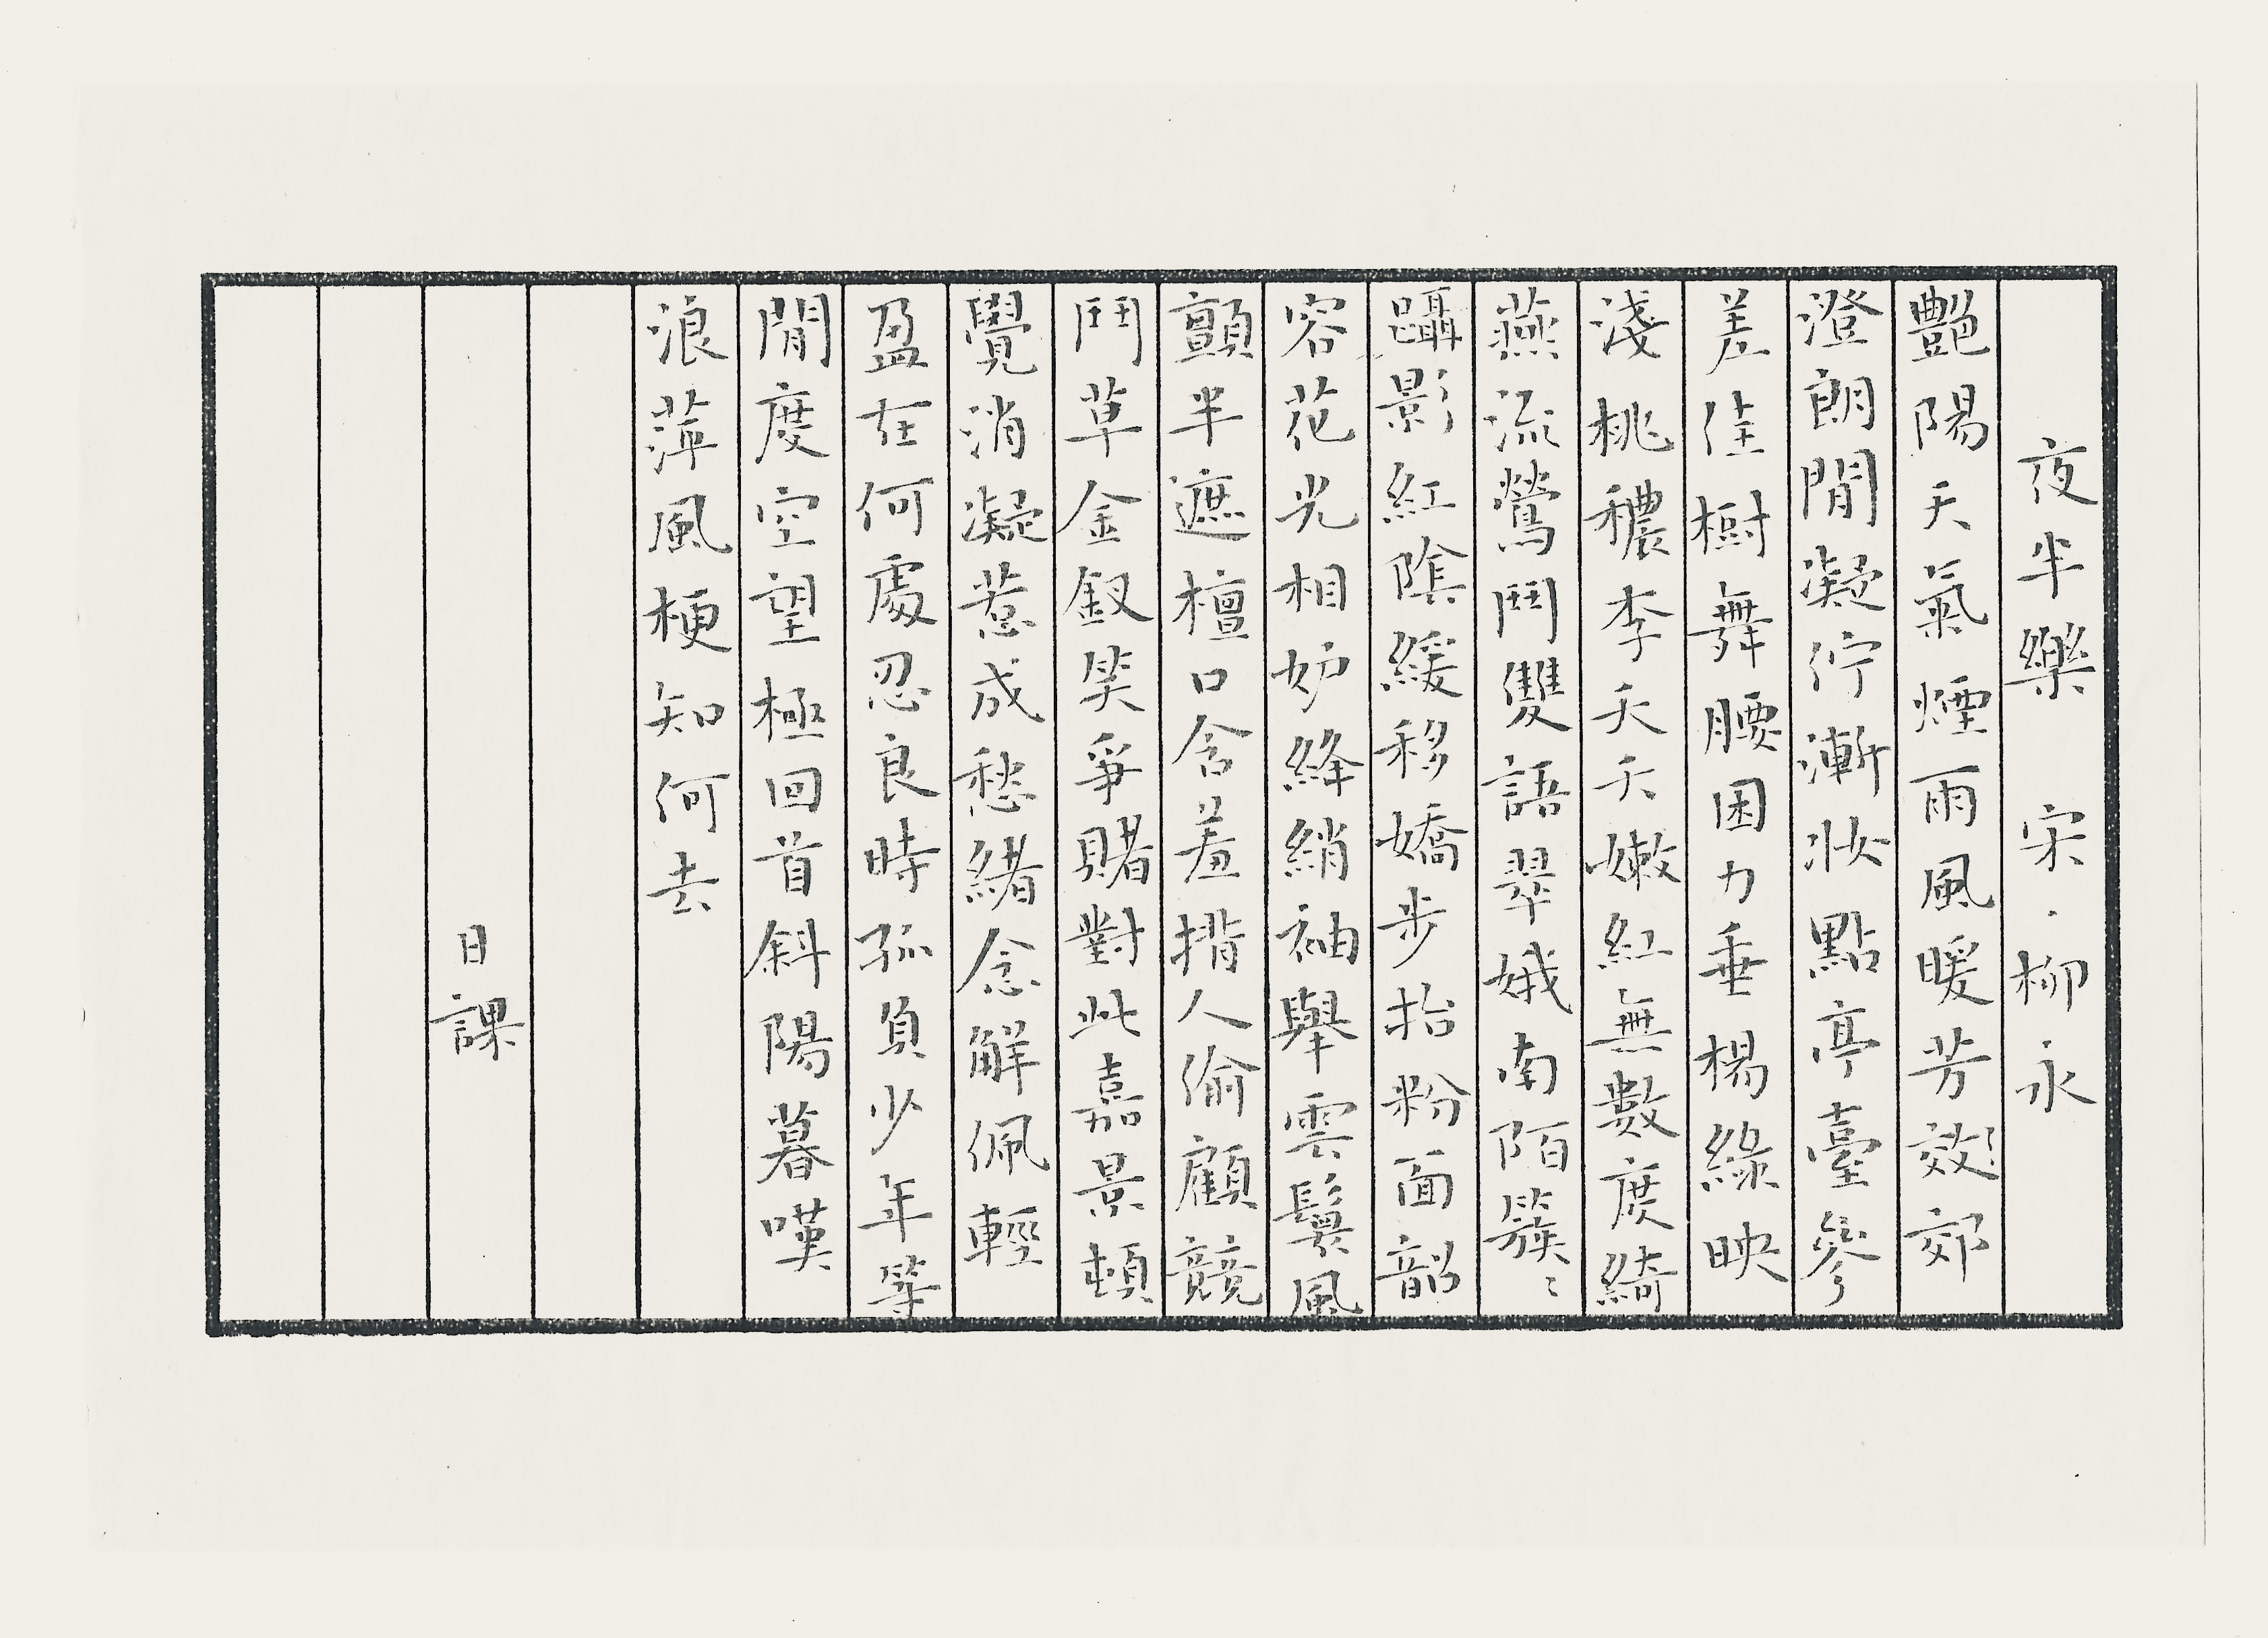 夜半樂　宋·柳永
艷陽天氣煙雨風暖芳效郊
澄朗閒凝佇漸妝點亭臺參
差佳樹舞腰困力垂楊綠映
淺桃穠李夭夭嫩紅無數度綺
燕流鶯鬥雙語翠娥南陌簇〻
躡影紅陰緩移嬌步抬粉面韶
容花光相妒絳綃袖舉雲鬟風
顫半遮檀口含羞揹人偷顧競
鬥草金釵笑爭賭對此嘉景頓
覺消凝惹成愁緒念解佩輕
盈在何處忍良時孤負少年等
閒度空望極回首斜陽暮嘆
浪萍風梗知何去
日課